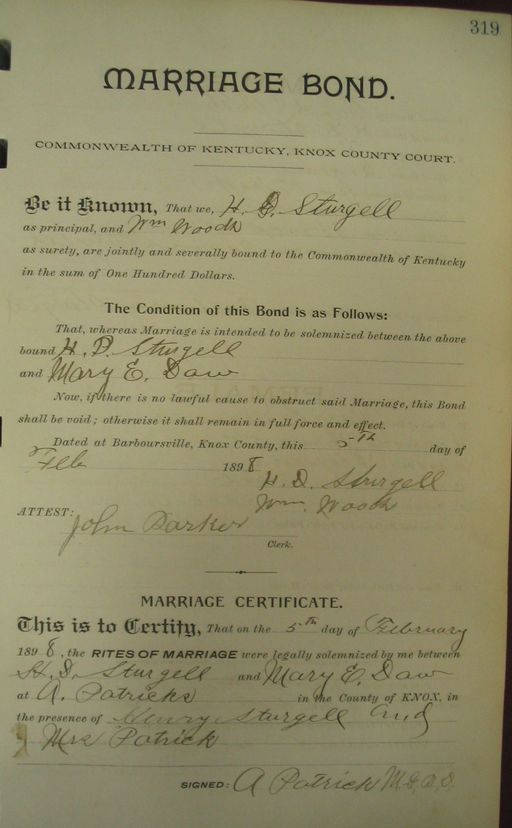 319
MARRIAGE BOND.
COMMONWEALTH OF KENTUCKY, KNOX COUNTY COURT.
Be it Known, That we, H. D. Sturgell
as principal, and Wm Woods
as surety, are jointly and severally bound to the Commonwealth of Kentucky
in the sum of One Hundred Dollars.
The Condition of this Bond is as Follows:
That, whereas Marriage is intended to be solemnized between the above
bound H. D. Sturgell
and Mary E. Daw
Now, if there is no lawful cause to obstruct said Marriage, this Bond
shall be void; otherwise it shall remain in full force and effect.
Dated at Barboursville, Knox County, this 5th day of
Feb 1898
H. D. Sturgell
Wm. Woods
ATTEST: John Parker
Clerk.
MARRIAGE CERTIFICATE.
This is to Certify, That on the 5th day of February
1898, the RITES OF MARRIAGE were legally solemnized by me between
H. D. Sturgell and Mary E. Daw
at A. Patricks in the County of KNOX, in
the presence of Henry Sturgell and
Mrs Patrick
SIGNED: A Patrick